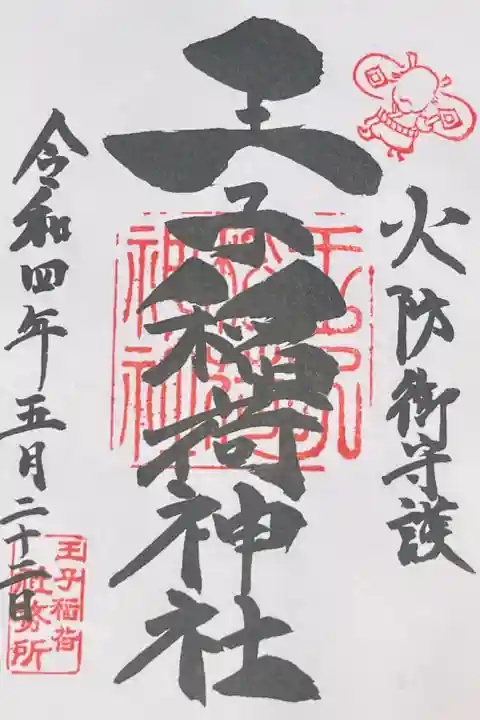 火防御守護
王子稲荷神社
令和四年五月二十二日
王子稲荷
社務所